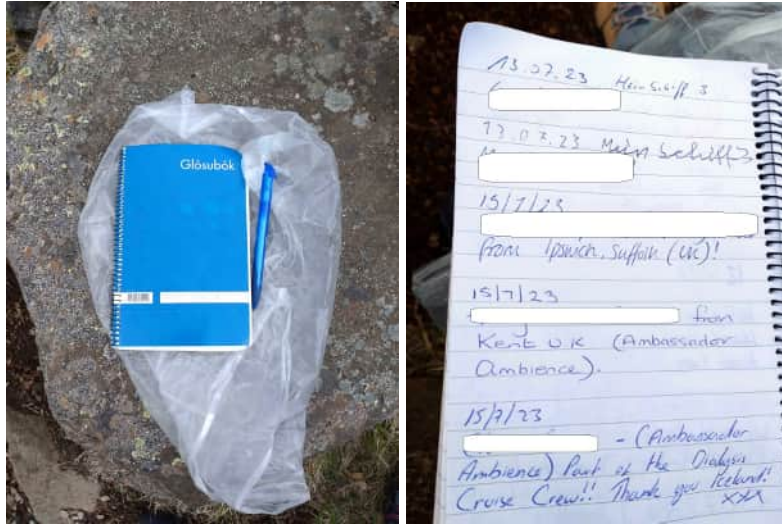 Glósubók
13.07.23 Mein Schiff 3
13.07.23 Mein Schiff 3
15/7/23
from Ipswich, Suffolk (UK)!
15/7/23
from
Kent UK (Ambassador
Ambience).
15/7/23
- (Ambassador
Ambience) Part of the Dialysis
Cruise Crew!! Thank you Iceland!
xxx